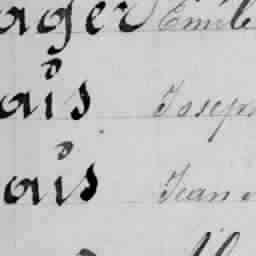 ager Emile
ais Joseph
ais Jean